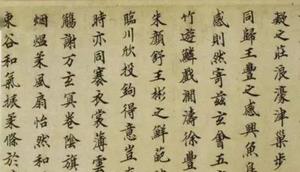 凝之莊浪濠津步
同歸王豐之感興魚鳥
感則然寄茲玄會五
竹遊鱗戲瀾濤徐豐
朱顏舒王彬之鮮葩
臨川欣投鉤得意豈在
時亦同褰裳薄雲
觴謝万玄冥卷陰旗
烟熅柔風扇怡然和
東谷和氣振柔條於